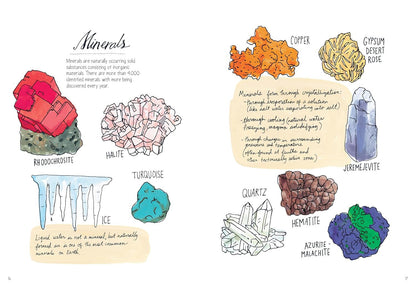 Minerals
Minerals are naturally occurring solid
substances consisting of inorganic
materials. There are more than 4,000
identified minerals with more being
discovered every year.
RHODOCHROSITE
HALITE
ICE
TURQUOISE
Liquid water is not a mineral, but naturally
formed ice is one of the most common
minerals on Earth.
COPPER
GYPSUM
DESERT
ROSE
Minerals form through crystallization:
• Through evaporation of a solution
(like salt water evaporating into salt)
• through cooling (natural water
freezing, magma solidifying)
• Through changes in surrounding
pressure and temperature
(often found at faults and
other tectonically active zones)
JEREMEJEVITE
QUARTZ
HEMATITE
AZURITE-
MALACHITE